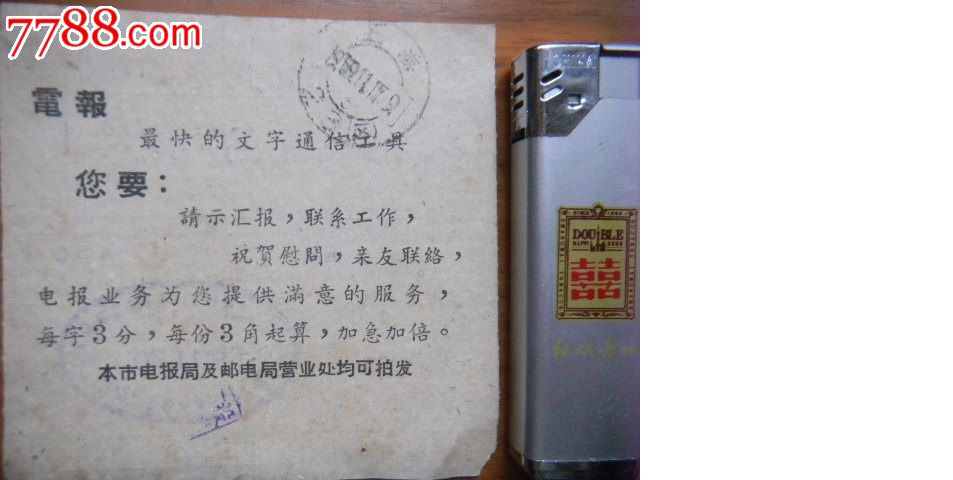 7788.com
電報
最快的文字通信工具
您要：
請示汇报，联系工作，
祝賀慰問，亲友联絡，
电报业务为您提供滿意的服务，
每字3分，每份3角起算，加急加倍。
本市电报局及邮电局营业处均可拍发
DOUBLE
囍